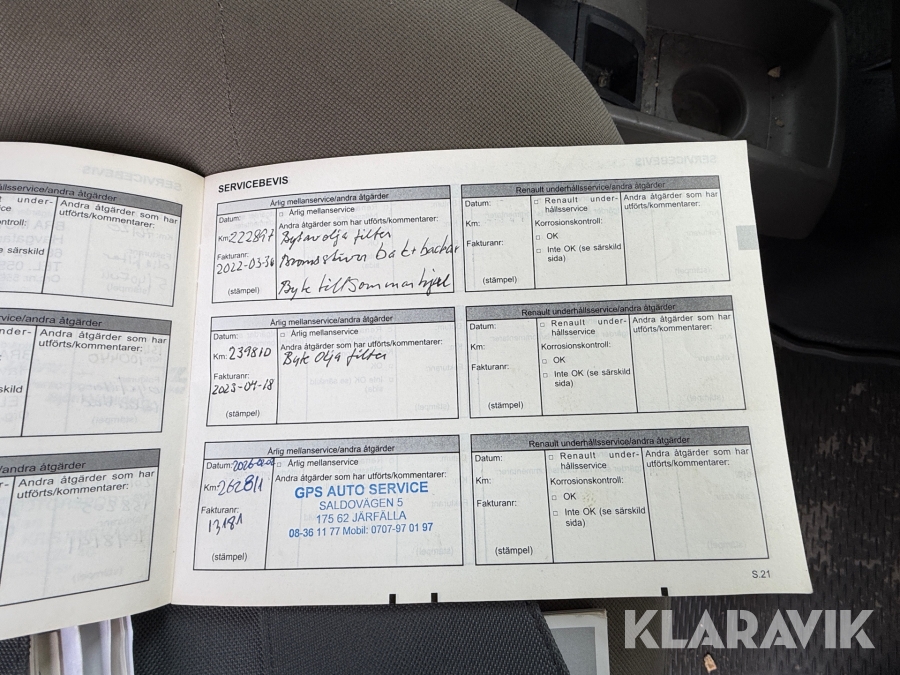 SERVICEBEVIS
Årlig mellanservice/andra åtgärder
Datum:
□ Årlig mellanservice
Andra åtgärder som har utförts/kommentarer:
Km: 222897
Bytav olja filter
Fakturanr:
2022-03-30
Bromsskivor bak + backar
Byte till Sommarhjul
(stämpel)
Renault underhållsservice/andra åtgärder
Datum:
Km:
Fakturanr:
(stämpel)
□ Renault under-
hållsservice
Korrosionskontroll:
□ OK
□ Inte OK (se särskild
sida)
Andra åtgärder som har
utförts/kommentarer:
Årlig mellanservice/andra åtgärder
Datum:
□ Årlig mellanservice
Andra åtgärder som har utförts/kommentarer:
Km: 239810
Byte olja filter
Fakturanr:
2023-04-18
(stämpel)
Renault underhållsservice/andra åtgärder
Datum:
Km:
Fakturanr:
(stämpel)
□ Renault under-
hållsservice
Korrosionskontroll:
□ OK
□ Inte OK (se särskild
sida)
Andra åtgärder som har
utförts/kommentarer:
Årlig mellanservice/andra åtgärder
Datum:
□ Årlig mellanservice
Andra åtgärder som har utförts/kommentarer:
Km: 262811
Fakturanr:
13181
(stämpel)
GPS AUTO SERVICE
SALDOVÄGEN 5
175 62 JÄRFÄLLA
08-36 11 77 Mobil: 0707-97 01 97
Renault underhållsservice/andra åtgärder
Datum:
Km:
Fakturanr:
(stämpel)
□ Renault under-
hållsservice
Korrosionskontroll:
□ OK
□ Inte OK (se särskild
sida)
Andra åtgärder som har
utförts/kommentarer:
S.21
KLARAVIK